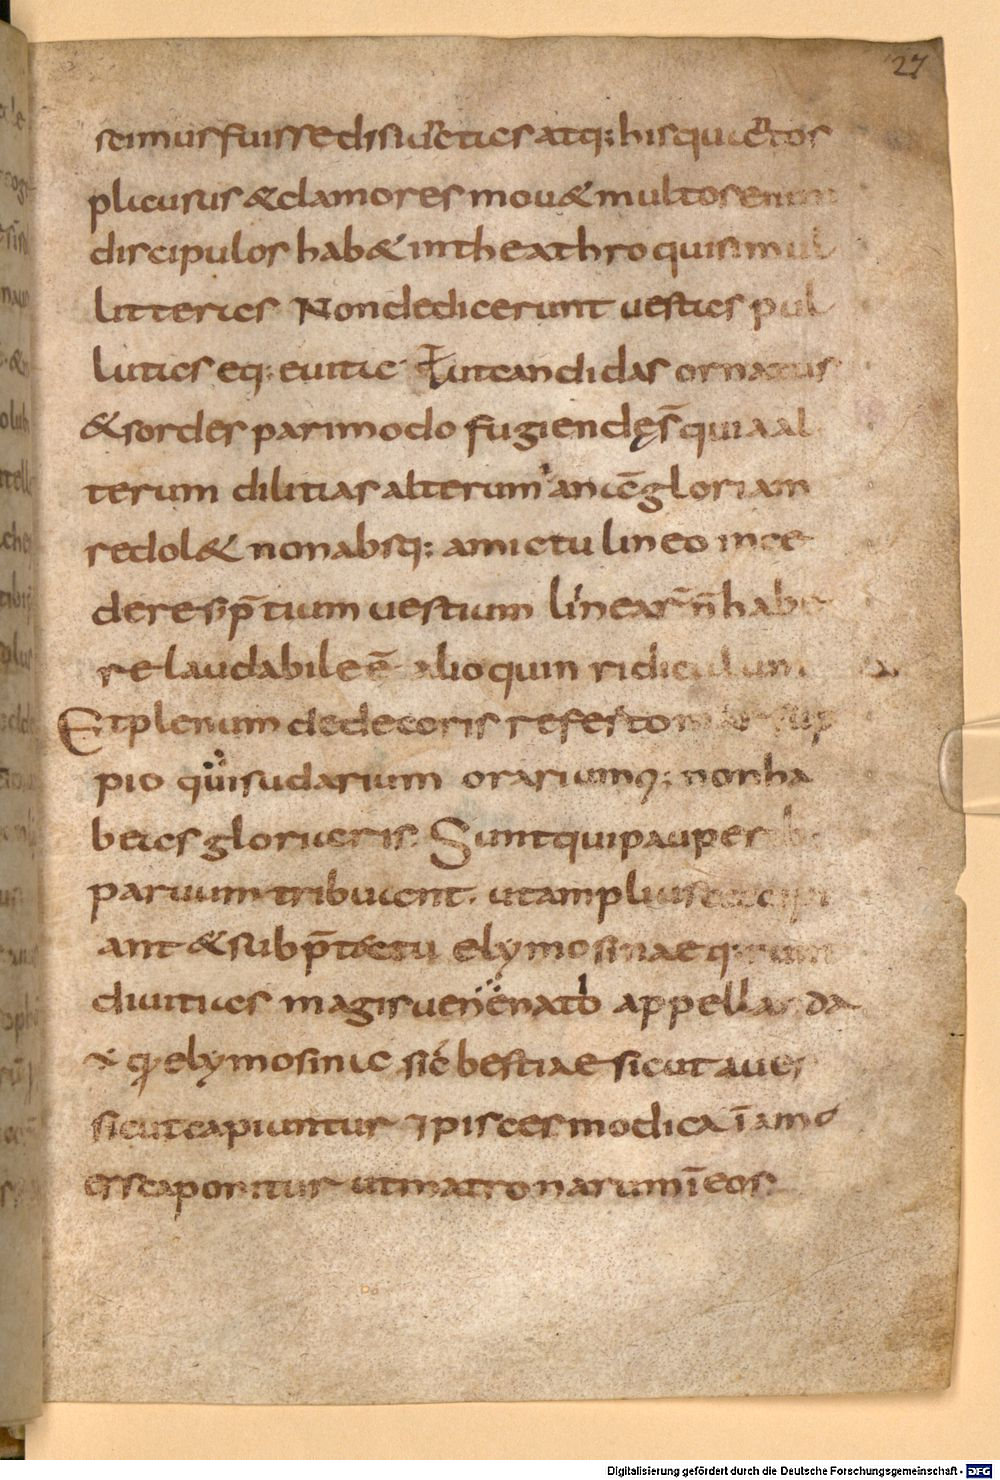 27
scimus fuisse dissuaetas atq; his qui caetos
plicusus & clamores mou& multos enim
discipulos hab& in theathro qui simul
litteras Non dedicerunt uestes pul
lutas eq; euita Aut candidas ornatus
& sordes pari modo fugiendę s̄ quia al
terum dilitias alterum anicē gloriam
redol& non absq; amictu lineo ince
dere sī p̄tium uestium linearū n̄ habe
re laudabile ē alioquin ridiculum
Et plenum dedecoris refesto
pio qui sudarium orariumq; non ha
beas glorieris. Sunt qui pauper
paruum tribuent. ut amplius
ant & sub p̄textu elymosinaeq;
diuitias magis uenenato appella da
elymosina sic bestiae sicut aues
sicut capiuntur ⁊ pisces modica ī amo
esca ponitur ut matronarum ī eos
Digitalisierung gefördert durch die Deutsche Forschungsgemeinschaft - DFG